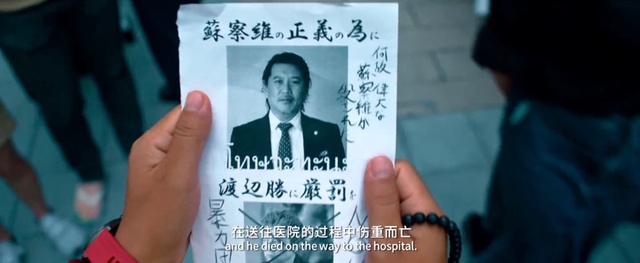 蘇察維の正義の為に
何故
偉大な
蘇察維が
โทษวะทะนะ
渡辺勝に厳罰を
暴力団
在送往医院的过程中伤重而亡
and he died on the way to the hospital.